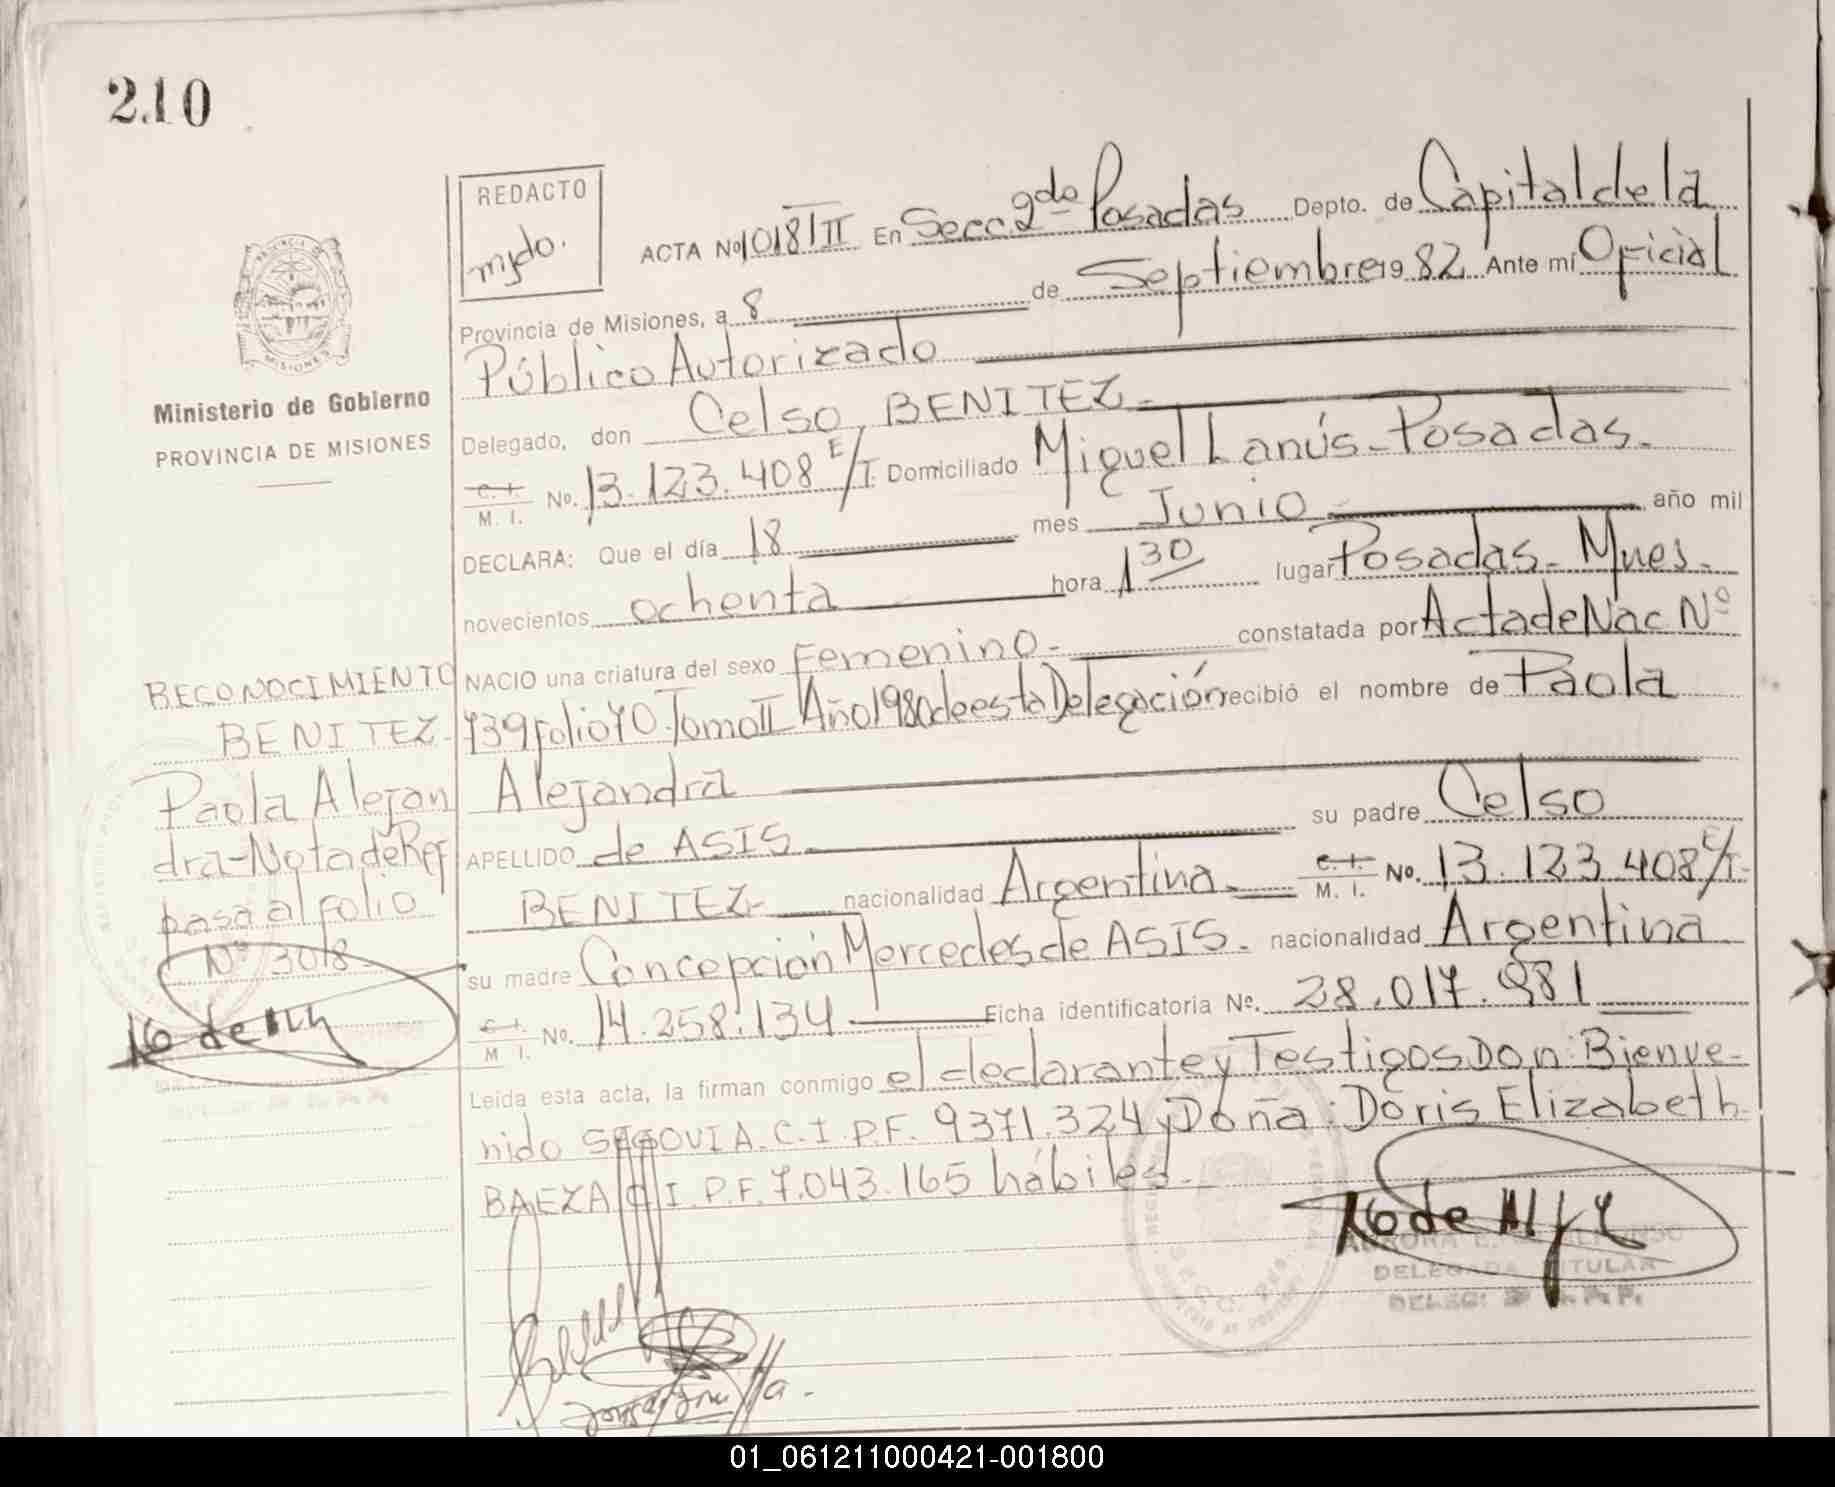 210
REDACTO
mydo.
ACTA Nº 1018/II En Secc 2do Posadas Depto. de Capital de la
Provincia de Misiones, a 8 de Septiembre 19 82 Ante mí Oficial
Público Autorizado
Delegado, don Celso, BENITEZ
C. I.
M. I. No. 13.123.408 E/T. Domiciliado Miguel Lanús - Posadas.
DECLARA: Que el día 18 mes Junio año mil
novecientos ochenta hora 1 30 lugar Posadas - Mnes.
NACIO una criatura del sexo Femenino. constatada por Acta de Nac Nº
739 folio 70 Tomo II Año 1980 de esta Delegación recibió el nombre de Paola
Alejandra
APELLIDO de ASIS su padre Celso
BENITEZ nacionalidad Argentina. C. I.
M. I. No. 13.123.408 E/T.
su madre Concepción Mercedes de ASIS. nacionalidad Argentina
C. I.
M. I. No. 14.258.134 Ficha identificatoria Nº. 28.017.981
Leída esta acta, la firman conmigo el declarante y Testigos Don: Bienve-
nido SEGOVIA. C.I.P.F. 9371.324 y Doña: Doris Elizabeth
BAEZA C.I.P.F. 7.043.165 hábiles.
DELEGADA TITULAR
Ministerio de Gobierno
PROVINCIA DE MISIONES
RECONOCIMIENTO
BENITEZ-
Paola Alejan
dra-Nota de Ref
pasa al folio
Nº 3018
01_061211000421-001800